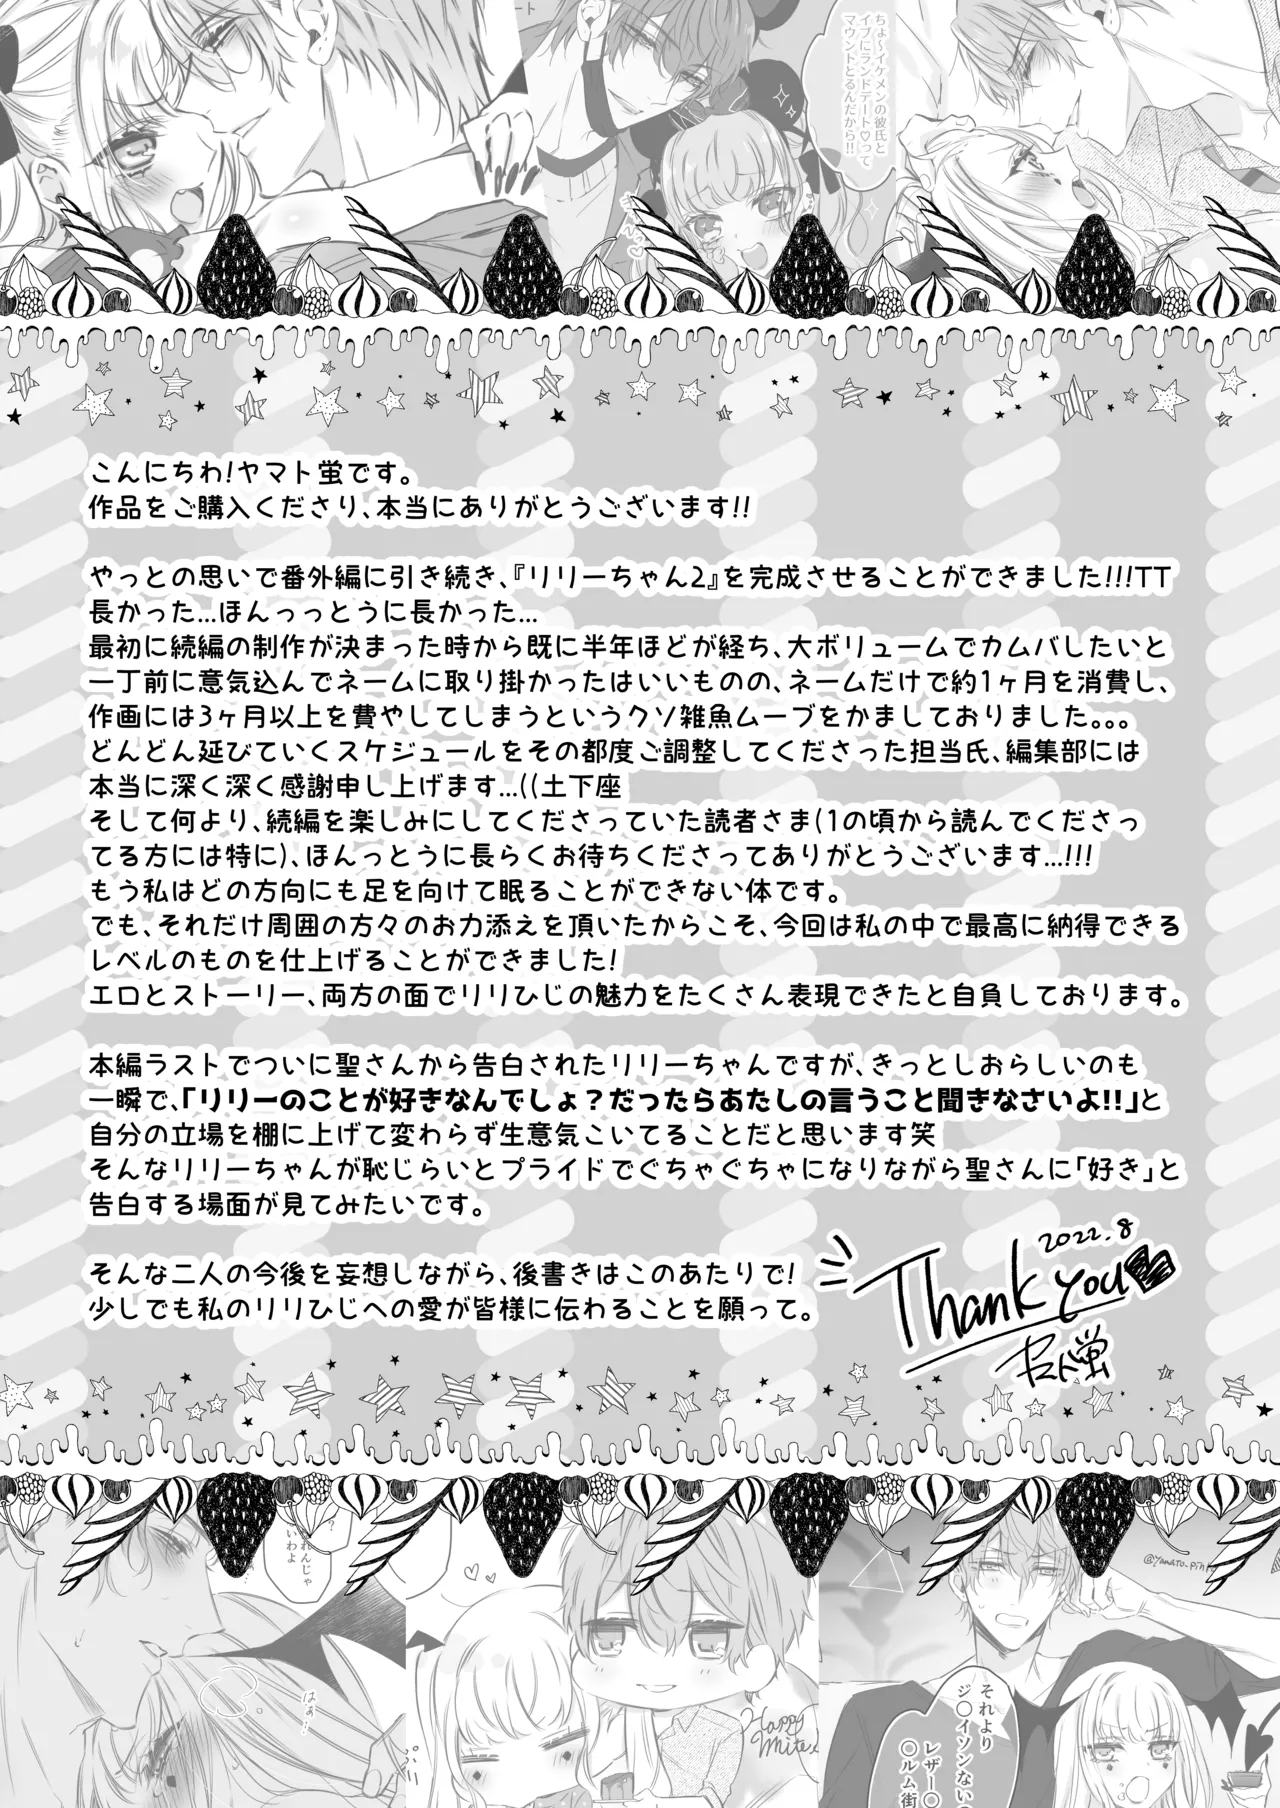 ート
ちょ〜イケメンの彼氏と
イブにランドデート♡って
マウントとるんだから!!
こんにちわ!ヤマト蛍です。
作品をご購入くださり、本当にありがとうございます!!
やっとの思いで番外編に引き続き、『リリーちゃん2』を完成させることができました!!!TT
長かった...ほんっっとうに長かった...
最初に続編の制作が決まった時から既に半年ほどが経ち、大ボリュームでカムバしたいと
一丁前に意気込んでネームに取り掛かったはいいものの、ネームだけで約1ヶ月を消費し、
作画には3ヶ月以上を費やしてしまうというクソ雑魚ムーブをかましておりました。。。
どんどん延びていくスケジュールをその都度ご調整してくださった担当氏、編集部には
本当に深く深く感謝申し上げます...((土下座
そして何より、続編を楽しみにしてくださっていた読者さま(1の頃から読んでくださっ
てる方には特に)、ほんっとうに長らくお待ちくださってありがとうございます...!!!
もう私はどの方向にも足を向けて眠ることができない体です。
でも、それだけ周囲の方々のお力添えを頂いたからこそ、今回は私の中で最高に納得できる
レベルのものを仕上げることができました!
エロとストーリー、両方の面でリリひじの魅力をたくさん表現できたと自負しております。
本編ラストでついに聖さんから告白されたリリーちゃんですが、きっとしおらしいのも
一瞬で、「リリーのことが好きなんでしょ?だったらあたしの言うこと聞きなさいよ!!」と
自分の立場を棚に上げて変わらず生意気こいてることだと思います笑
そんなリリーちゃんが恥じらいとプライドでぐちゃぐちゃになりながら聖さんに「好き」と
告白する場面が見てみたいです。
そんな二人の今後を妄想しながら、後書きはこのあたりで!
少しでも私のリリひじへの愛が皆様に伝わることを願って。
2022.8
Thank you
ヤマト蛍
れんじゃ
いわよ
はぁ…
Happy
White
@yamato_pink
それより
ジ〇イソンない
レザー〇
〇ルム街